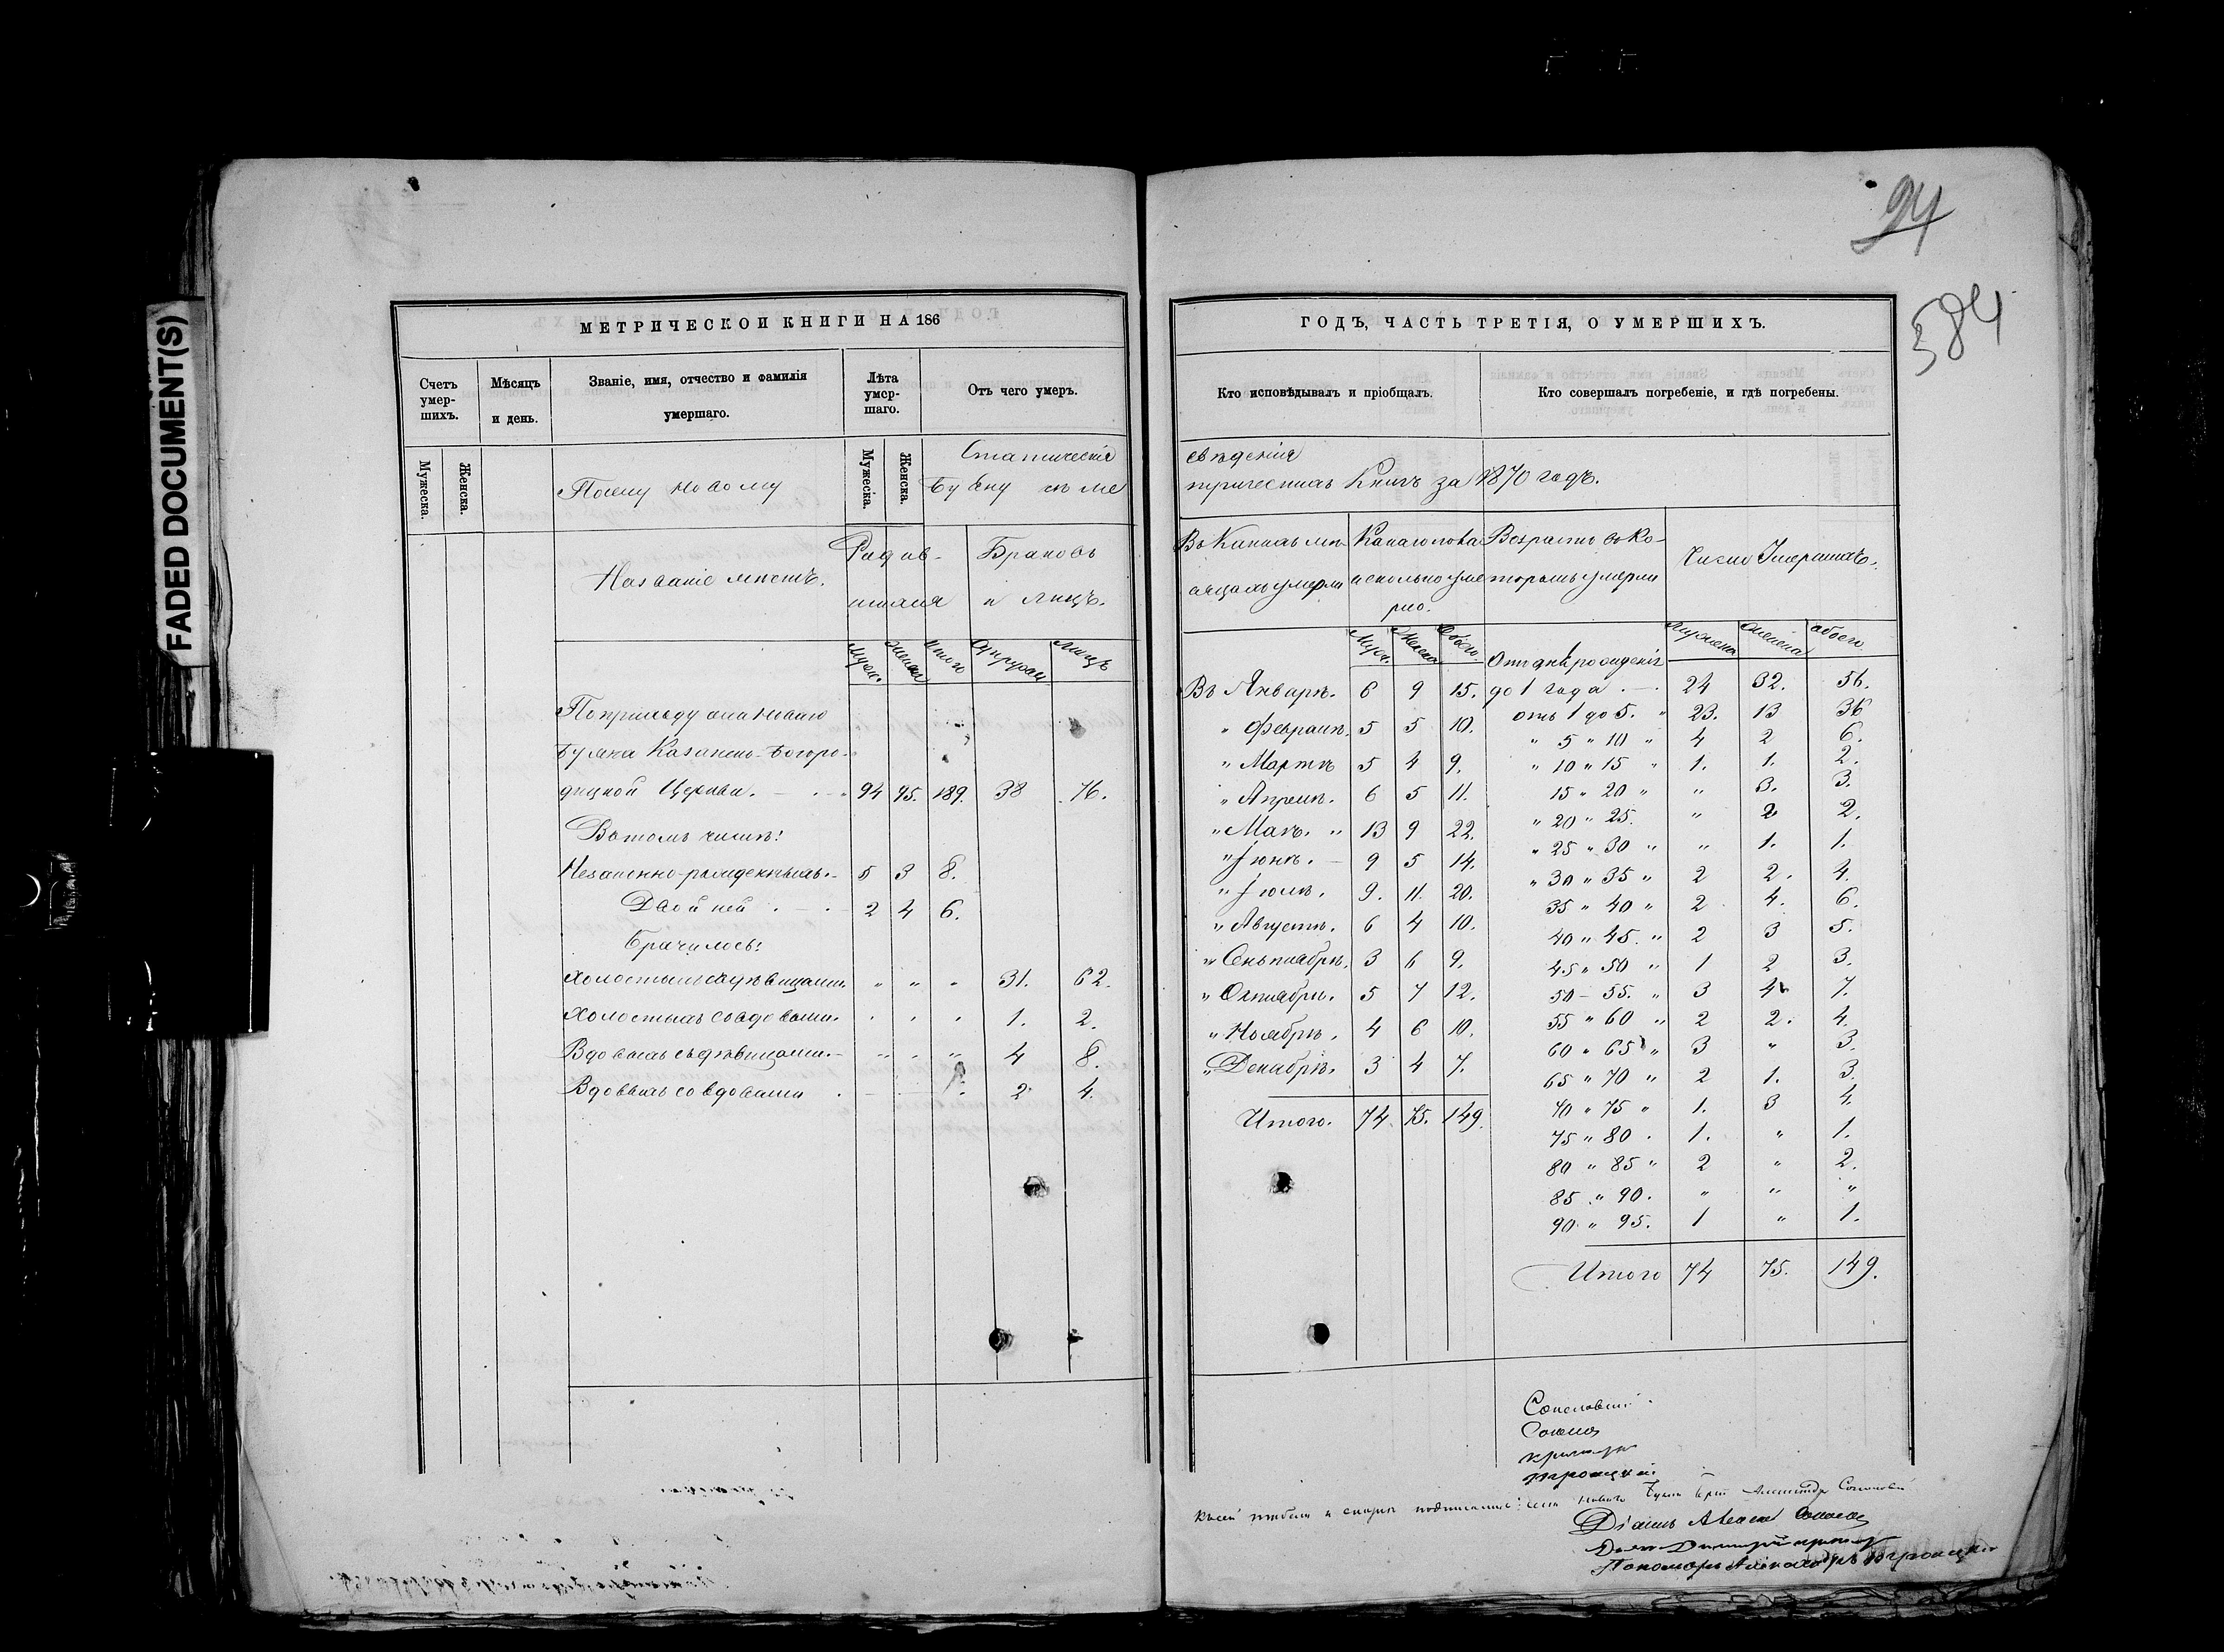 FADED DOCUMENT(S)
24
584
МЕТРИЧЕСКОЙ КНИГИ НА 186
Счетъ умер-шихъ.
Мѣсяцъ и день.
Званіе, имя, отчество и фамилія умершаго.
Лѣта умер-шаго.
Отъ чего умеръ.
Мужеска.
Женска.
Мужеска.
Женска.
Статическія
По селу Новому Буяну къ ме
Названіе мѣстъ.
Родив-шихся
Браковъ и лицъ.
Мужес.
Женска
Итого
Супруж.
Лицъ
По приходу села Новаго
Буяна Казанско-Богоро-
дицкой Церкви. 94 95. 189. 38 76.
Въ томъ числѣ:
Незаконно-рожденныхъ. 5 3 8.
Двойней 2 4 6.
Брачилось:
Холостыхъ съ дѣвицами. " " " 31. 62.
Холостыхъ со вдовами. " " " 1. 2.
Вдовыхъ съ дѣвицами. " " " 4 8.
Вдовыхъ со вдовами 2 4.
ГОДЪ, ЧАСТЬ ТРЕТІЯ, О УМЕРШИХЪ.
Кто исповѣдывалъ и пріобщалъ.
Кто совершалъ погребеніе, и гдѣ погребены.
свѣденія
трическихъ Книгъ за 1870 годъ.
Въ какихъ мѣ-сяцахъ умерли
Какаго пола и сколько умерло.
Возрастъ въ ко-торомъ умерли
Число Умершихъ.
Муж.
Женска
Обоего.
Мужеска
Женска
обоего
Въ Январѣ. 6 9 15.
" Февралѣ. 5 5 10.
" Мартѣ 5 4 9.
" Апрелѣ. 6 5 11.
" Маѣ. " 13 9 22.
" Іюнѣ. 9 5 14.
" Іюлѣ. 9. 11. 20.
" Августѣ. 6 4 10.
" Сентнабрѣ. 3 6 9.
" Октнабрѣ. 5 7 12.
" Ноябрѣ. 4 6 10.
" Декабрѣ. 3 4 7.
Итого. 74. 75. 149.
Отъ дня рожденія
до 1 года 24 32. 56.
отъ 1 до 5. " 23. 13 36
" 5 " 10 " 4 2 6.
" 10 " 15 " 1. 1. 2.
15 " 20 " " 3. 3.
" 20 " 25. " 2 2.
" 25 " 30 " " 1. 1.
" 30 " 35 " 2 2. 4.
35 " 40 " 2 4. 6.
40 " 45. " 2 3 5.
45 " 50 " 1 2 3.
50 – 55. " 3 4 7.
55 " 60 " 2 2. 4.
60 " 65 " 3 " 3.
65 " 70 " 2 1. 3.
70 " 75 " 1. 3 4.
75 " 80 . 1. " 1.
80 " 85 " 2 " 2.
85 " 90. " " "
90 " 95. 1 " 1.
Итого 74 75. 149.
троицкій
Пономарь Александръ троицкій